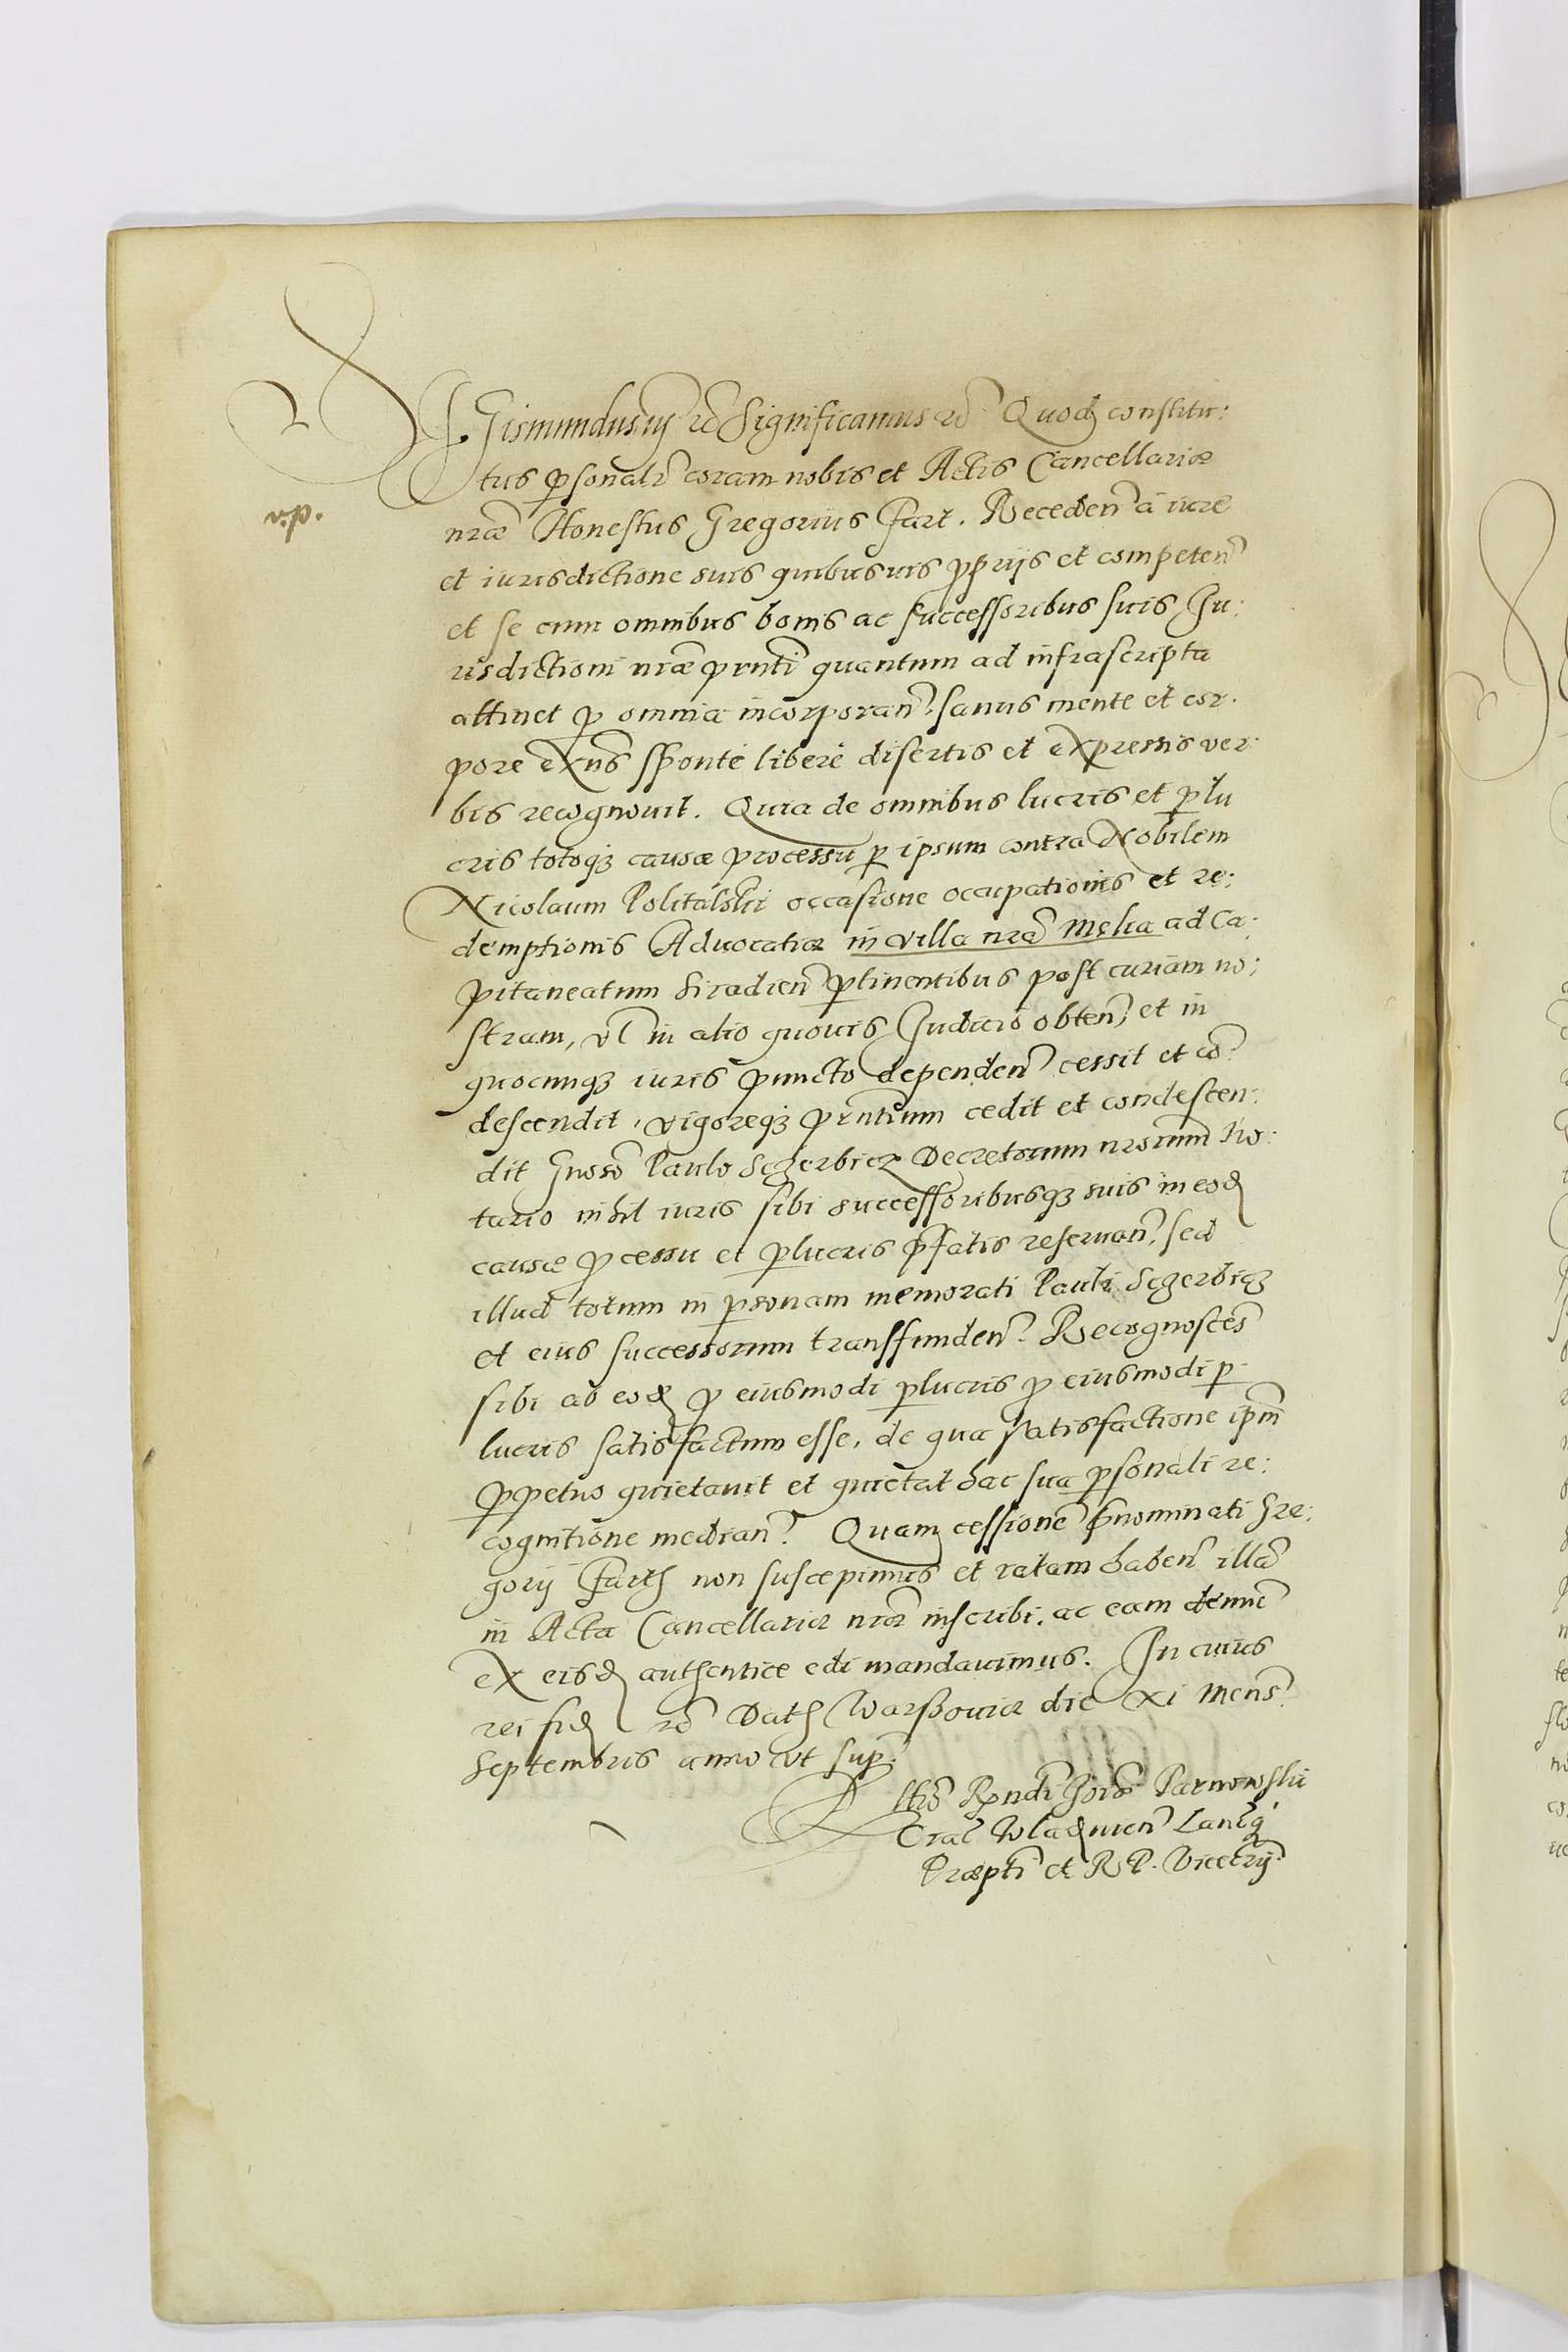 SIGismundus iij rc Significamus rc Quod constitu:
tus psonalr coram nobis et Actis Cancellariæ
nræ Honestus Gregorius Fart. Receden a iure
vip.
et iurisdictione suis quibusuis pprijs et competen
et se cum omnibus bonis ac successoribus suis Ju:
risdictioni nræ prnti quantum ad infrascripta
attinet p omnia incorporan. sanus mente et cor.
pore exns sponte libere disertis et expressis ver
bis recognouit. Quia de omnibus lucris et plu
cris totoq causæ processu p ipsum contra Nobilem
Nicolaum Politalski occasione occupationis et re:
demptionis Aduocatiæ in villa nra Męka ad Ca:
pitaneatum Siradien ptinentibus post curiam no:
stram, vl in alio quouis Judicio obten, et in
quocunq iuris puncto dependen cessit et co
descendit, vigoreq prntium cedit et condescen:
dit Gnoso Paulo Sczerbicz Decretorum nrorum No:
tario nihil iuris sibi successoribusq suis in eod
causæ pcessu et plucris pfatis reseruan, sed
illud totum in psonam memorati Pauli Sczerbicz
et eius successorum transfunden. Recognoscēs
sibi ab eod p eiusmodi plucris p eiusmodi p
lucris satisfactum esse, de qua satisfactione ipm
ppetuo quietauit et quietat hac sua psonali re:
cognitione median. Quam cessionē pnominati Gre:
gorij Farth non suscepimus et ratam haben illā
in Acta Cancellariæ nræ inscribi, ac eam denuc
ex eisd authentice edi mandauimus. In cuius
rei fid rc Dath Warssouiæ die xi Mens
Septembris anno vt sup.
Rltio Rzndi Jois Tarnowski
Cral Wladzuien Lanlq
Præpti et R P. Vicecrij